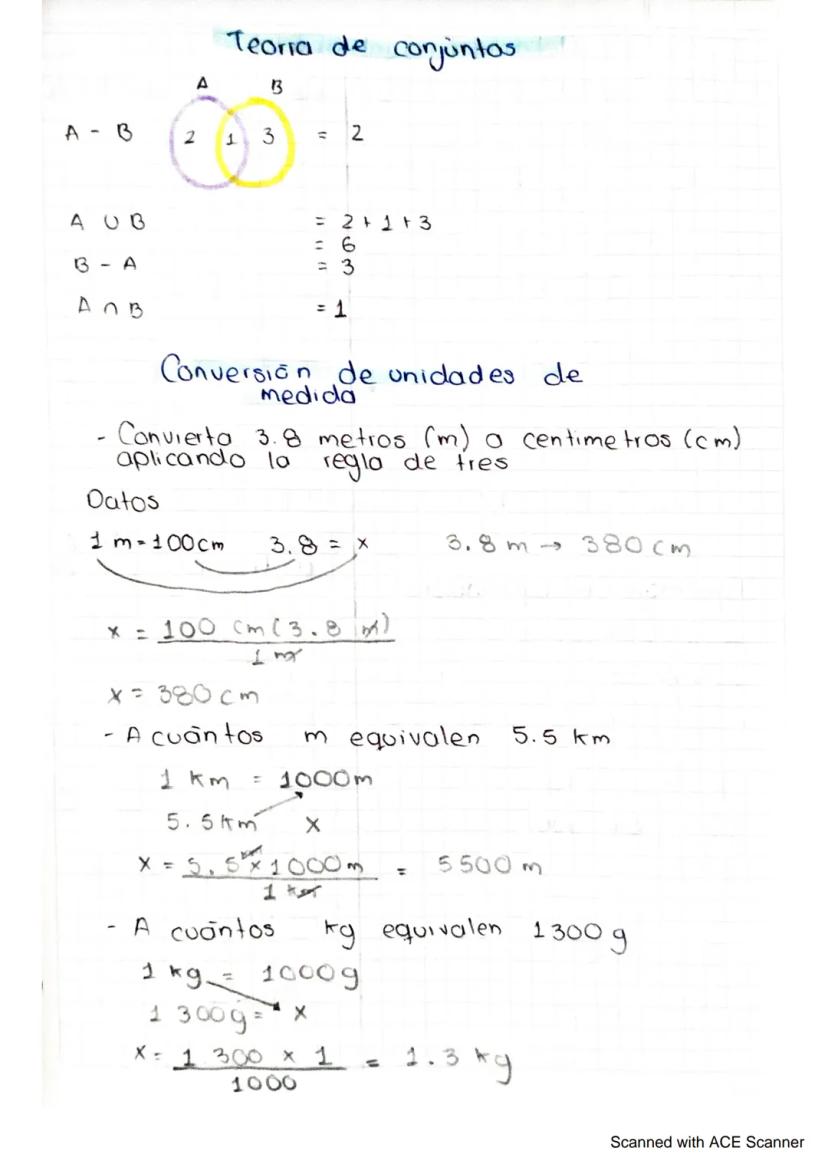 Teoría de conjuntos
A B
A - B 2 1 3 = 2
A ∪ B = 2 + 1 + 3
= 6
B - A = 3
A ∩ B = 1
Conversión de unidades de
medida
- Convierta 3.8 metros (m) a centimetros (cm)
aplicando la regla de tres
Datos
1 m = 100 cm 3.8 = x 3.8 m → 380 cm
x = 100 cm (3.8 m)
1 m
x = 380 cm
- A cuántos m equivalen 5.5 km
1 km = 1000 m
5.5 km x
x = 5.5 km x 1000 m = 5500 m
1 km
- A cuántos kg equivalen 1300 g
1 kg = 1000 g
1 300 g = x
x = 1 300 x 1 = 1.3 kg
1000
Scanned with ACE Scanner